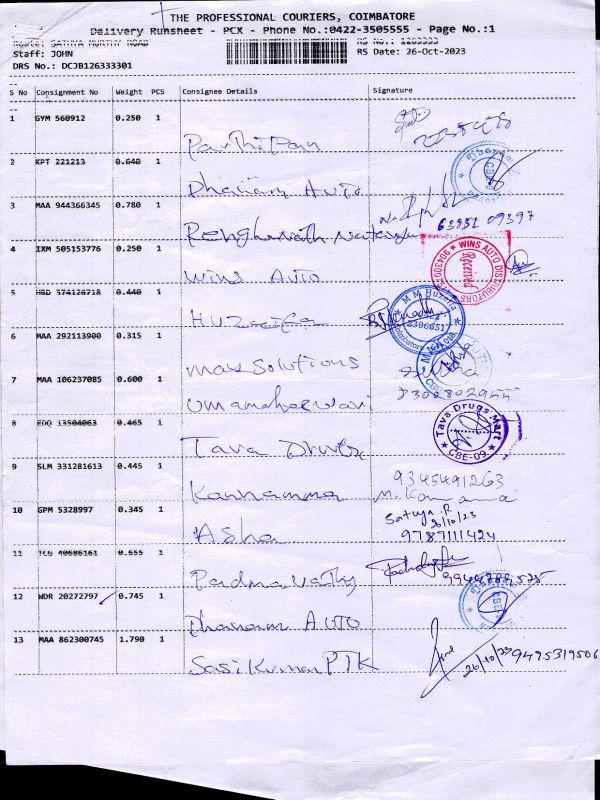 THE PROFESSIONAL COURIERS, COIMBATORE
Delivery Runsheet - PCX - Phone No.:0422-3505555 - Page No.:1
Route: SATHYA MURTHY ROAD
RS No.: 1263333
Staff: JOHN
RS Date: 26-Oct-2023
DRS No.: DCJB126333301
S No Consignment No Weight PCS Consignee Details Signature
1 GYM 560912 0.250 1
Parthiban
2 KPT 221213 0.640 1
Dhanam Auto
3 MAA 944366345 0.780 1
63851 09397
Renghunath Natarajan
4 IXM 505153776 0.250 1
WINS AUTO DISTRIBUTORS
Received
Wins Auto
5 HRD 374126718 0.440 1
M M Huzeifa
Huzeifa
6 MAA 292113900 0.315 1
Max Solutions
7 MAA 106237085 0.600 1
8300802955
Umamaheswari
8 EDQ 13504063 0.465 1
Tava Drugs Mart
CBE-09
Tava Drugs
9 SLM 331281613 0.445 1
9345491263
Kannamma
10 GPM 5328997 0.345 1
Sathya.R
26/10/23
9787111424
Asha
11 TCG 40686161 0.555 1
Padmavathy
12 WDR 20272797 0.745 1
Dhanam Auto
13 MAA 862300745 1.790 1
26/10/23 9495319506
Sasikumar PTK